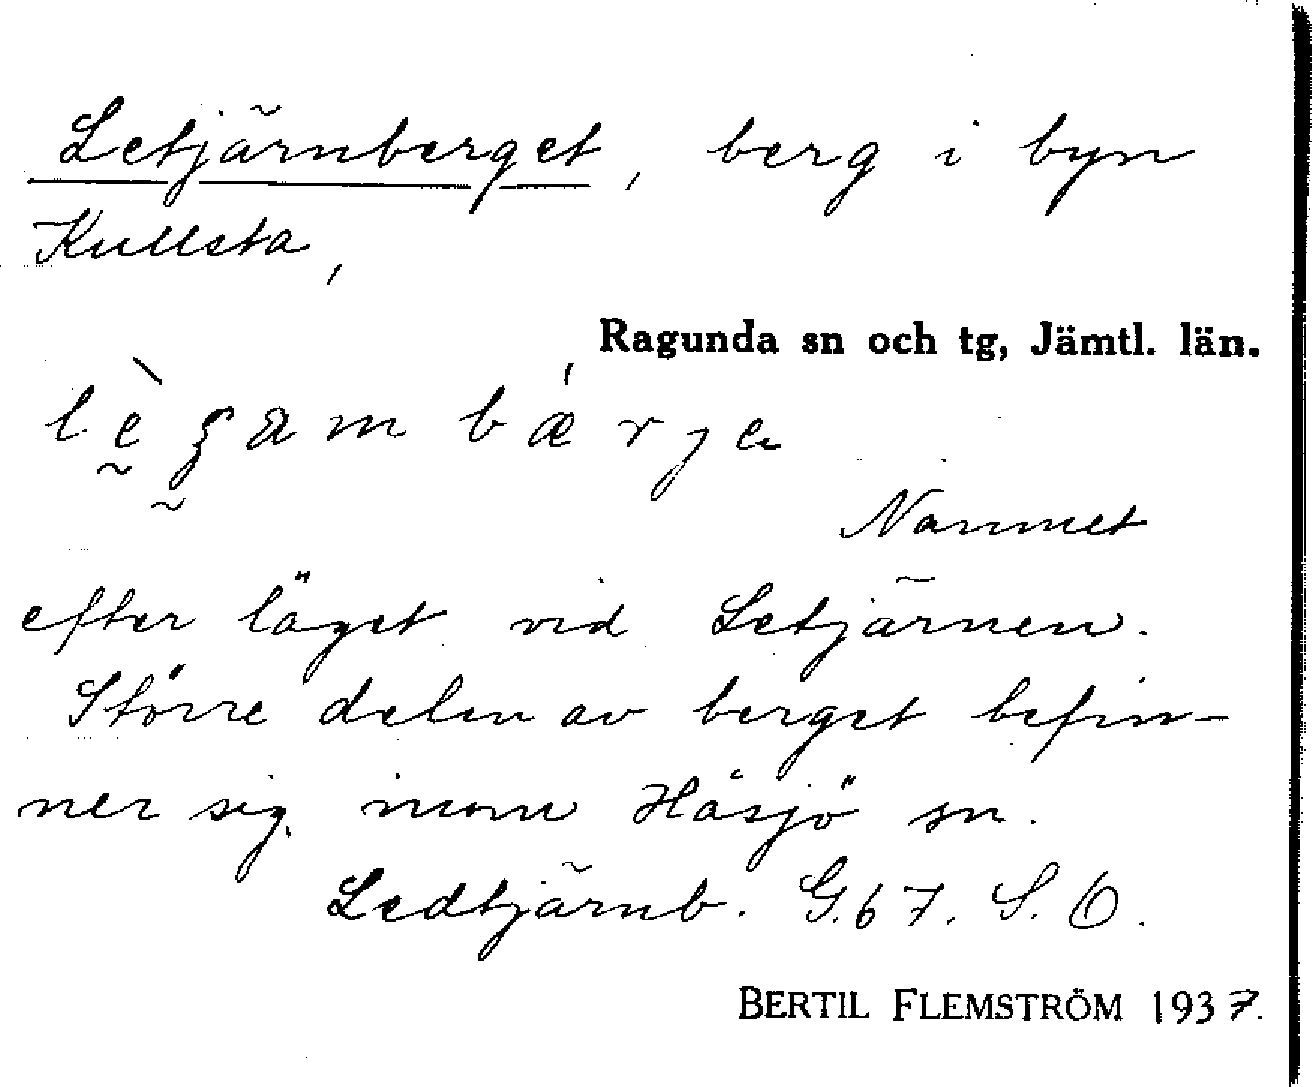 Letjärnberget, berg i byn
Kullsta,
Ragunda sn och tg, Jämtl. län.
Namnet
efter läget vid Letjärnen.
Större delen av berget befin-
ner sig inom Håsjö sn.
Ledtjärnb. G. 67. S. O.
BERTIL FLEMSTRÖM 1937.